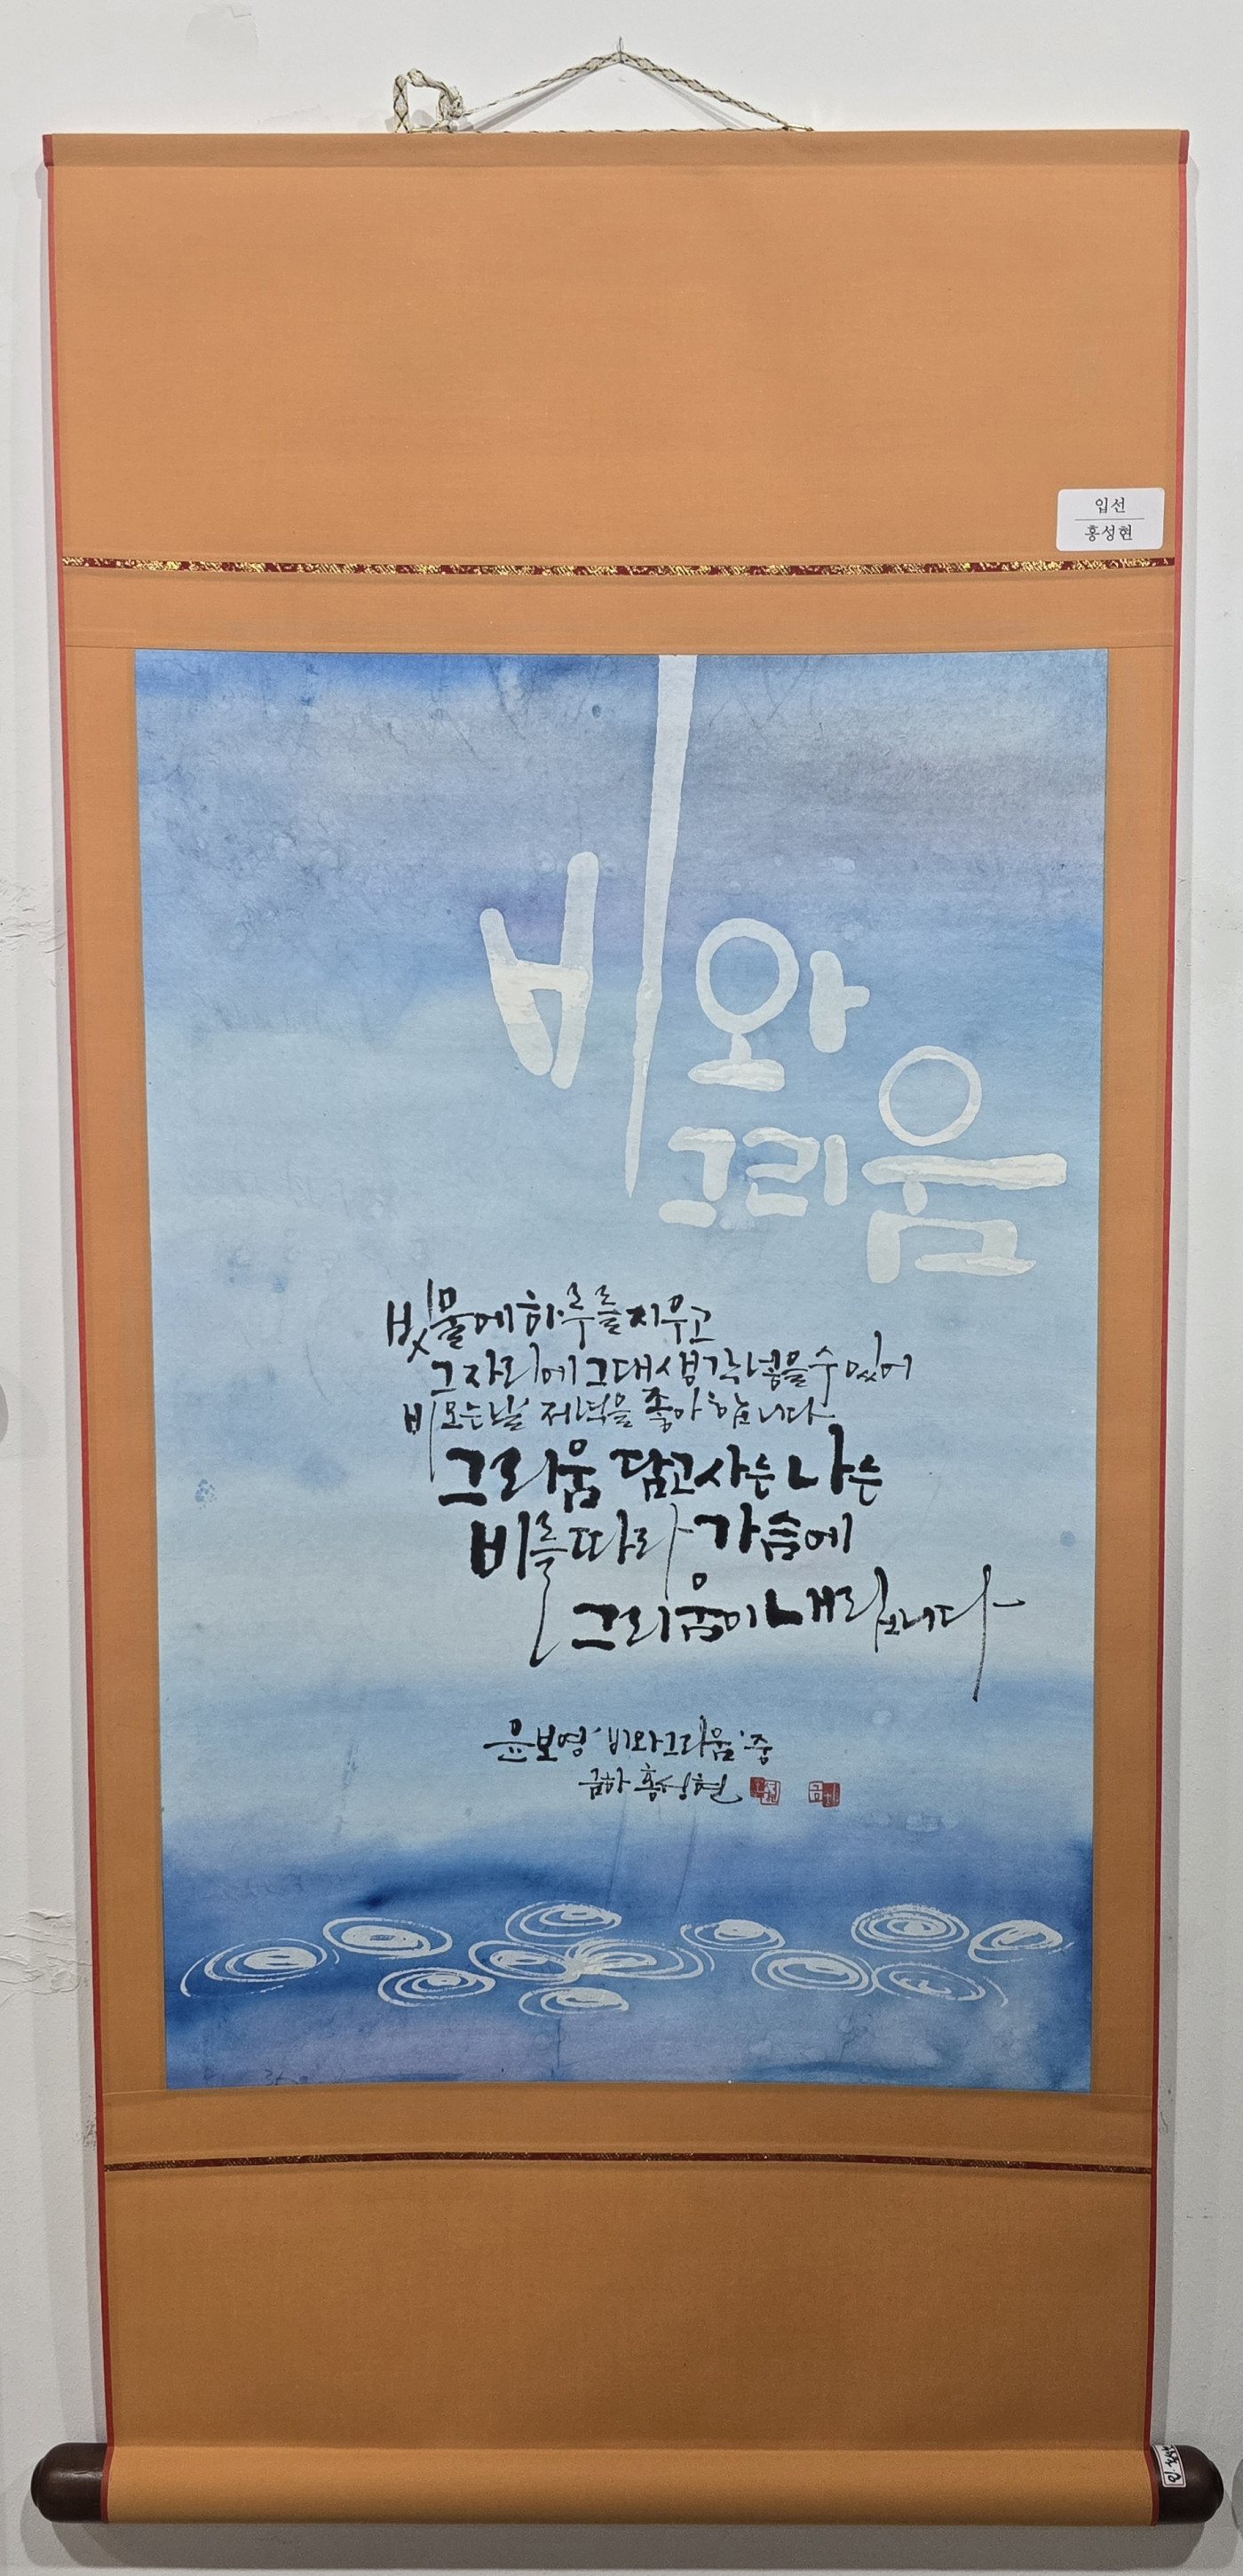 입선
홍성현
비와
그리움
빗물에 하루를 지우고
그 자리에 그대 생각 넣을 수 있어
비 오는 날 저녁을 좋아합니다
그리움 담고 사는 나는
비를 따라 가슴에
그리움이 내립니다
윤보영 '비와 그리움' 중
금하 홍성현